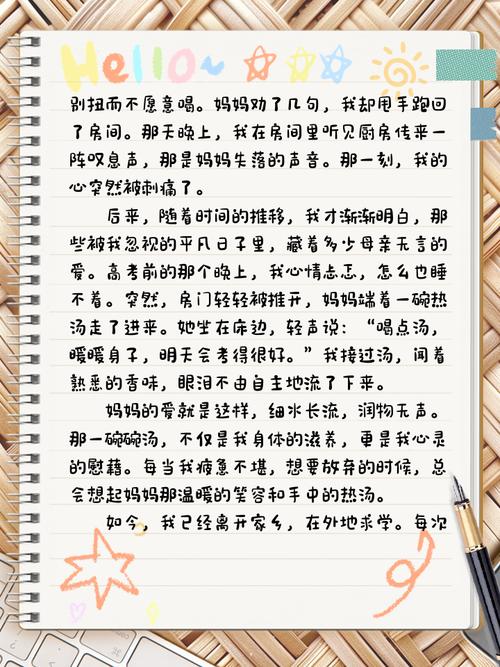 Hello~
别扭而不愿意喝。妈妈劝了几句，我却甩手跑回
了房间。那天晚上，我在房间里听见厨房传来一
阵叹息声，那是妈妈失落的声音。那一刻，我的
心突然被刺痛了。
后来，随着时间的推移，我才渐渐明白，那
些被我忽视的平凡日子里，藏着多少母亲无言的
爱。高考前的那个晚上，我心情忐忑，怎么也睡
不着。突然，房门轻轻被推开，妈妈端着一碗热
汤走了进来。她坐在床边，轻声说：“喝点汤，
暖暖身子，明天会考得很好。”我接过汤，闻着
熟悉的香味，眼泪不由自主地流了下来。
妈妈的爱就是这样，细水长流，润物无声。
那一碗碗汤，不仅是我身体的滋养，更是我心灵
的慰藉。每当我疲惫不堪，想要放弃的时候，总
会想起妈妈那温暖的笑容和手中的热汤。
如今，我已经离开家乡，在外地求学。每次